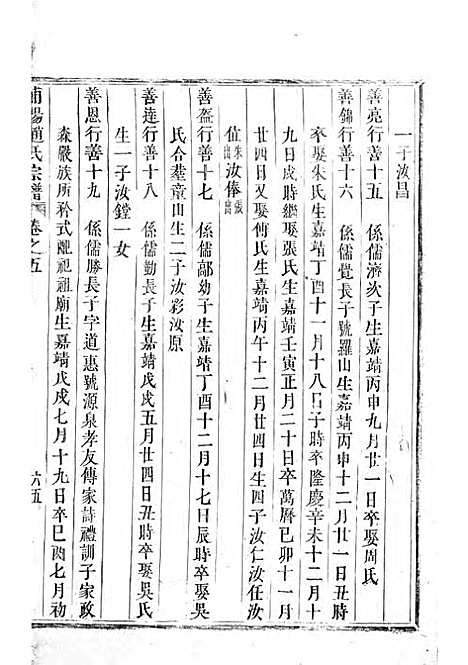 一子汝昌
善亮行善十五 係儒濟次子生嘉靖丙申九月廿一日卒娶周氏
善錦行善十六 係儒覺長子號羅山生嘉靖丙申十二月廿一日丑時
卒娶朱氏生嘉靖丁酉十一月十八日子時卒隆慶辛未十二月
九日戌時繼娶張氏生嘉靖壬寅正月二十日卒萬曆己卯十一月
廿四日又娶傅氏生嘉靖丙午十二月廿四日生四子汝仁汝任汝
值朱出汝俸張出
善盔行善十七 係儒鄗幼子生嘉靖丁酉十二月十七日辰時卒娶吳
氏合葬章山生二子汝彩汝原
善達行善十八 係儒勤長子生嘉靖戊戌五月廿四日丑時卒娶吳氏
生一子汝鏜一女
善恩行善十九 係儒勝長子字道惠號源泉孝友傳家詩禮訓子家政
森嚴族所矜式配祀祖廟生嘉靖戊戌七月十九日卒己酉七月初
浦陽趙氏宗譜 卷之五 六五